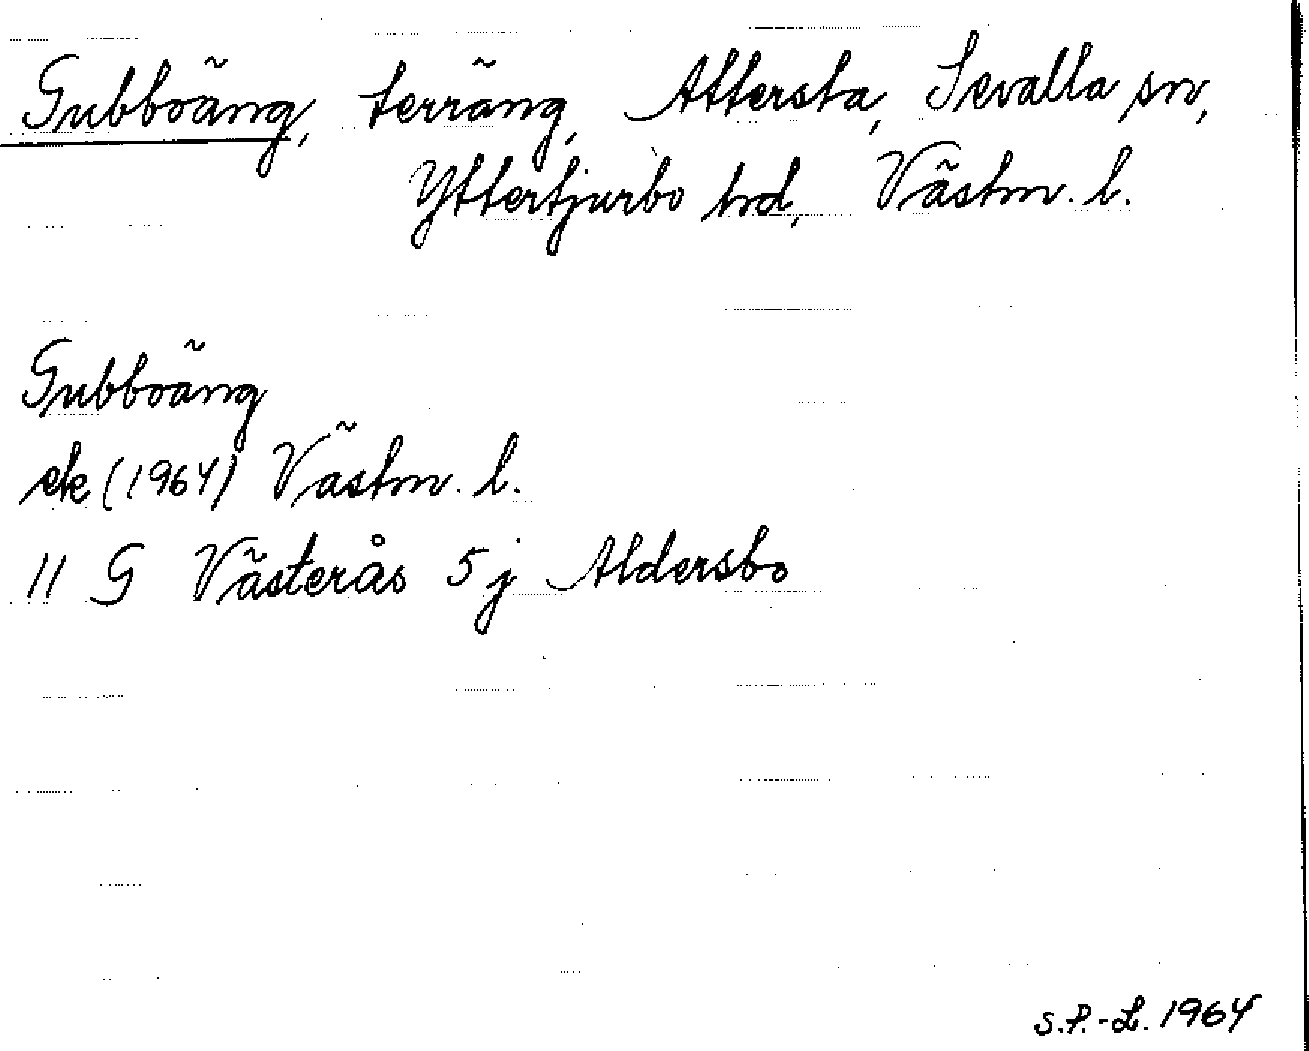 Gubboäng, terräng, Attersta, Sevalla sn,
Yttertjurbo hd, Västm. l.
Gubboäng
ek (1964) Västm. l.
11 G Västerås 5 j Aldersbo
S.P.-L. 1964